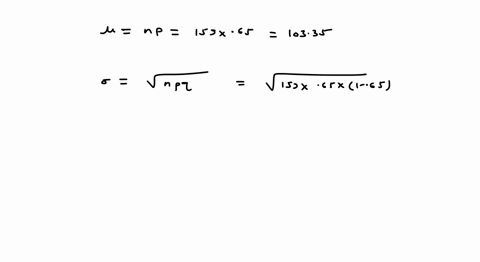 μ = np = 159x .65 = 103.35
σ = √npq = √159x .65x(1-.65)